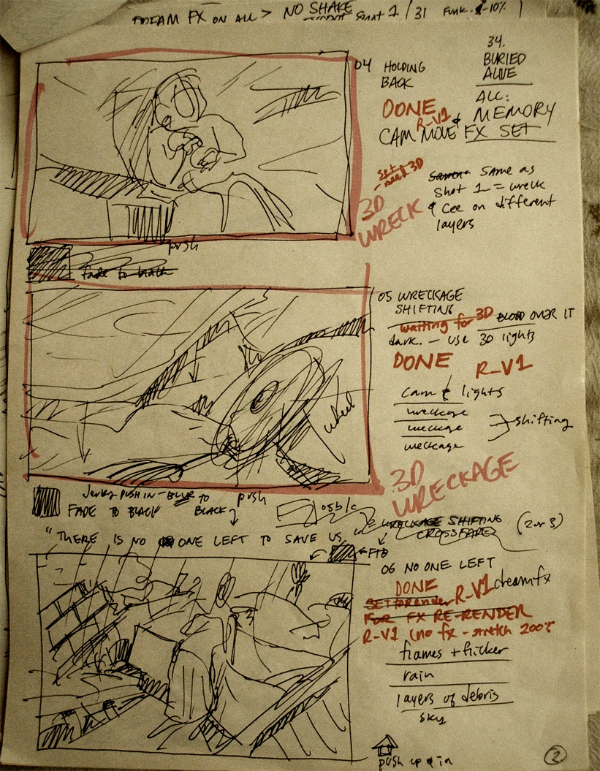 DREAM FX ON ALL > NO SHAKE
Shot 1/31 Funk. 8-10%
34.
BURIED
ALIVE
ALL:
MEMORY
FX SET
04 HOLDING
BACK
DONE
R-V1
CAM MOVE
3D
WRECK
same as
Shot 1 = wreck
& Cee on different
layers
push
Fade to black
05 WRECKAGE
SHIFTING
waiting for 3D BLOOD OVER IT
dark. - use 3D lights
DONE R-V1
Cam & lights
wreckage
wreckage
wreckage
shifting
wheel
3D
WRECKAGE
Jerky PUSH IN - BLUR TO
BLACK
push
FADE TO BLACK
05b/c
WRECKAGE SHIFTING
CROSSFADE
(2 or 3)
"THERE IS NO ONE LEFT TO SAVE US.
FTB
06 NO ONE LEFT
DONE
R-V1 dreamfx
SET TO Render
FOR FX RE-RENDER
R-V1 (no fx - stretch 200%
frames + flicker
rain
layers of debris
sky
push up & in
2